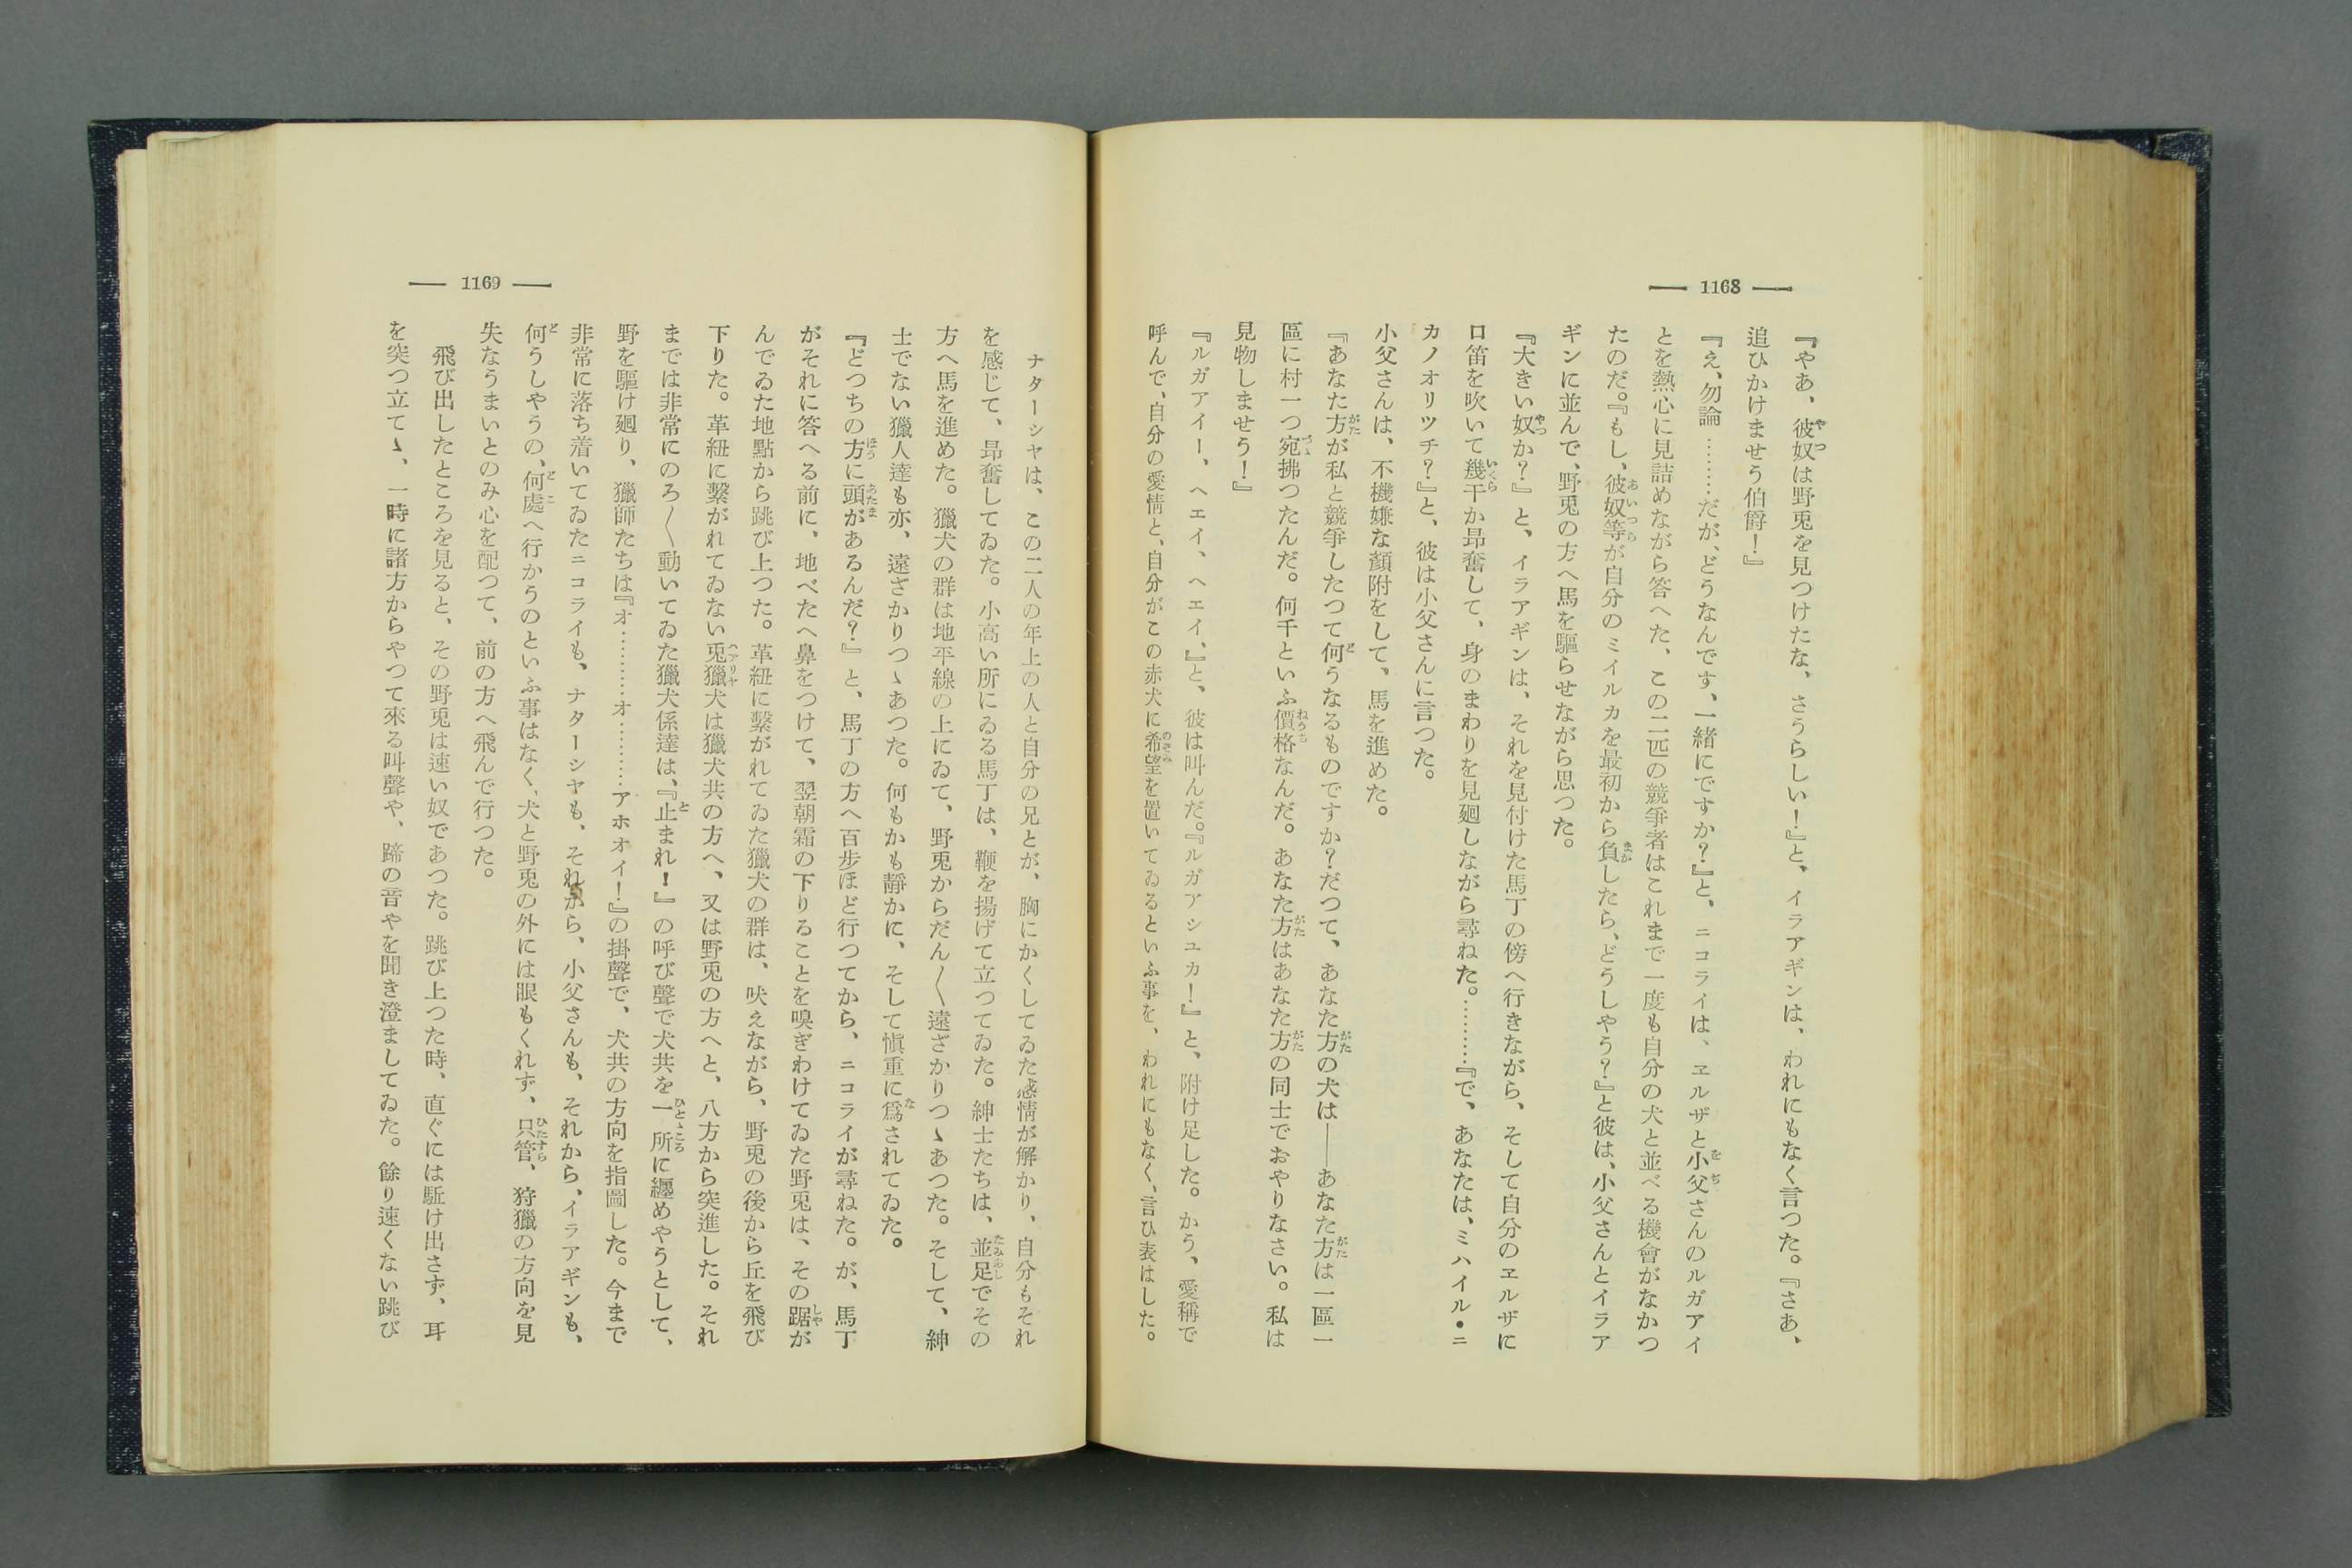 — 1168 —
『やあ、彼奴は野兎を見つけたな、さうらしい！』と、イラアギンは、われにもなく言つた。『さあ、
追ひかけませう伯爵！』
『え、勿論………だが、どうなんです、一緒にですか？』と、ニコライは、ヱルザと小父さんのルガアイ
とを熱心に見詰めながら答へた、この二匹の競爭者はこれまで一度も自分の犬と並べる機會がなかつ
たのだ。『もし、彼奴等が自分のミイルカを最初から負したら、どうしやう？』と彼は、小父さんとイラア
ギンに並んで、野兎の方へ馬を驅らせながら思つた。
『大きい奴か？』と、イラアギンは、それを見付けた馬丁の傍へ行きながら、そして自分のヱルザに
口笛を吹いて幾干か昂奮して、身のまわりを見廻しながら尋ねた。………『で、あなたは、ミハイル・ニ
カノオリツチ？』と、彼は小父さんに言つた。
小父さんは、不機嫌な顏附をして、馬を進めた。
『あなた方が私と競爭したつて何うなるものですか？だつて、あなた方の犬は――あなた方は一區一
區に村一つ宛拂つたんだ。何千といふ價格なんだ。あなた方はあなた方の同士でおやりなさい。私は
見物しませう！』
『ルガアイー、ヘエイ、ヘエイ、』と、彼は叫んだ。『ルガアシユカ！』と、附け足した。かう、愛稱で
呼んで、自分の愛情と、自分がこの赤犬に希望を置いてゐるといふ事を、われにもなく、言ひ表はした。
— 1169 —
ナターシヤは、この二人の年上の人と自分の兄とが、胸にかくしてゐた感情が解かり、自分もそれ
を感じて、昂奮してゐた。小高い所にゐる馬丁は、鞭を揚げて立つてゐた。紳士たちは、並足でその
方へ馬を進めた。獵犬の群は地平線の上にゐて、野兎からだん〱遠ざかりつゝあつた。そして、紳
士でない獵人達も亦、遠ざかりつゝあつた。何もかも靜かに、そして愼重に爲されてゐた。
『どつちの方に頭があるんだ？』と、馬丁の方へ百步ほど行つてから、ニコライが尋ねた。が、馬丁
がそれに答へる前に、地べたへ鼻をつけて、翌朝霜の下りることを嗅ぎわけてゐた野兎は、その踞が
んでゐた地點から跳び上つた。革紐に繫がれてゐた獵犬の群は、吠えながら、野兎の後から丘を飛び
下りた。革紐に繫がれてゐない兎獵犬は獵犬共の方へ、又は野兎の方へと、八方から突進した。それ
までは非常にのろ〱動いてゐた獵犬係達は、『止まれ！』の呼び聲で犬共を一所に纒めやうとして、
野を驅け廻り、獵師たちは『オ………オ………アホオイ！』の掛聲で、犬共の方向を指圖した。今まで
非常に落ち着いてゐたニコライも、ナターシヤも、それから、小父さんも、それから、イラアギンも、
何うしやうの、何處へ行かうのといふ事はなく、犬と野兎の外には眼もくれず、只管、狩獵の方向を見
失なうまいとのみ心を配つて、前の方へ飛んで行つた。
飛び出したところを見ると、その野兎は速い奴であつた。跳び上つた時、直ぐには駈け出さず、耳
を突つ立てゝ、一時に諸方からやつて來る叫聲や、蹄の音やを聞き澄ましてゐた。餘り速くない跳び